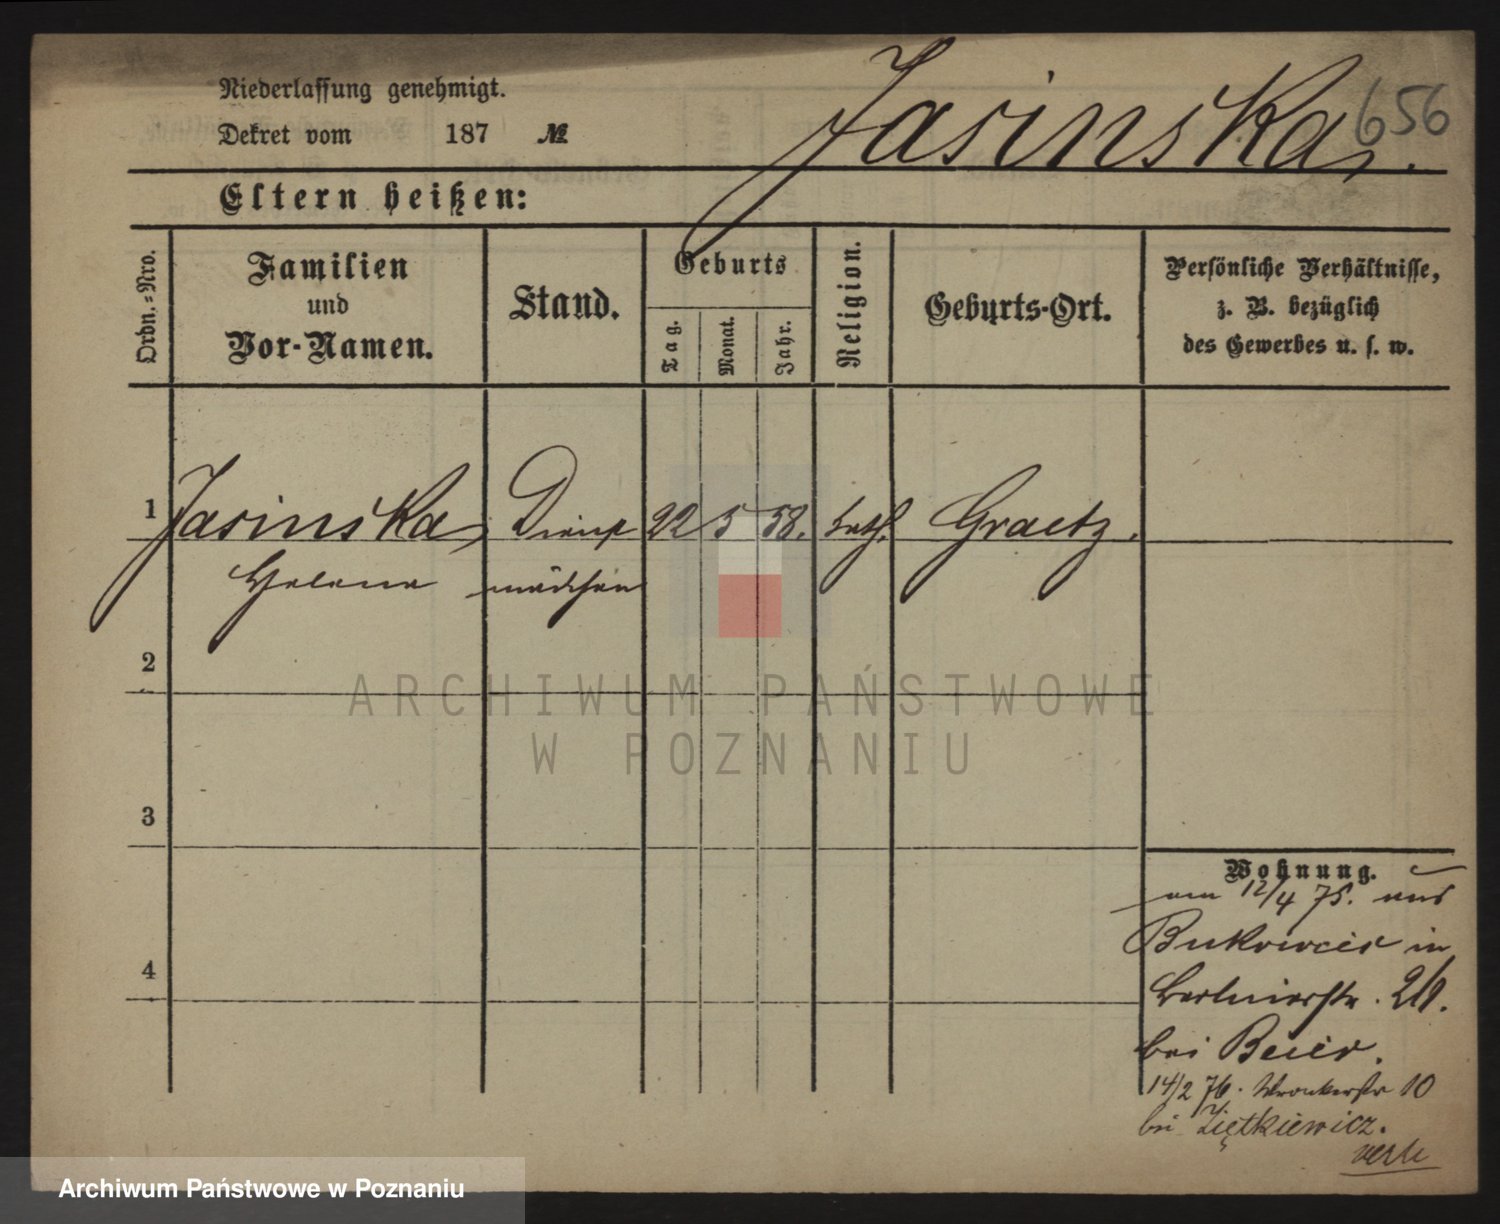 Niederlassung genehmigt.
Dekret vom 187 №
Jasinska,.
656
Eltern heißen:
Ordn.=Nro.
Familien
und
Vor-Namen.
Stand.
Geburts
Tag.
Monat.
Jahr.
Religion.
Geburts-Ort.
Persönliche Verhältnisse,
z. B. bezüglich
des Gewerbes u. s. w.
1 Jasinska, Dienst 22 5 58. kath. Graetz.
Helene mädchen
2
3
4
Wohnung.
am 12/4 75. aus
in
Berlinerstr.
bei Beier.
14/2 76. Wronkerstr 10
bei Ziętkiewicz.
ARCHIWUM PAŃSTWOWE
W POZNANIU
Archiwum Państwowe w Poznaniu